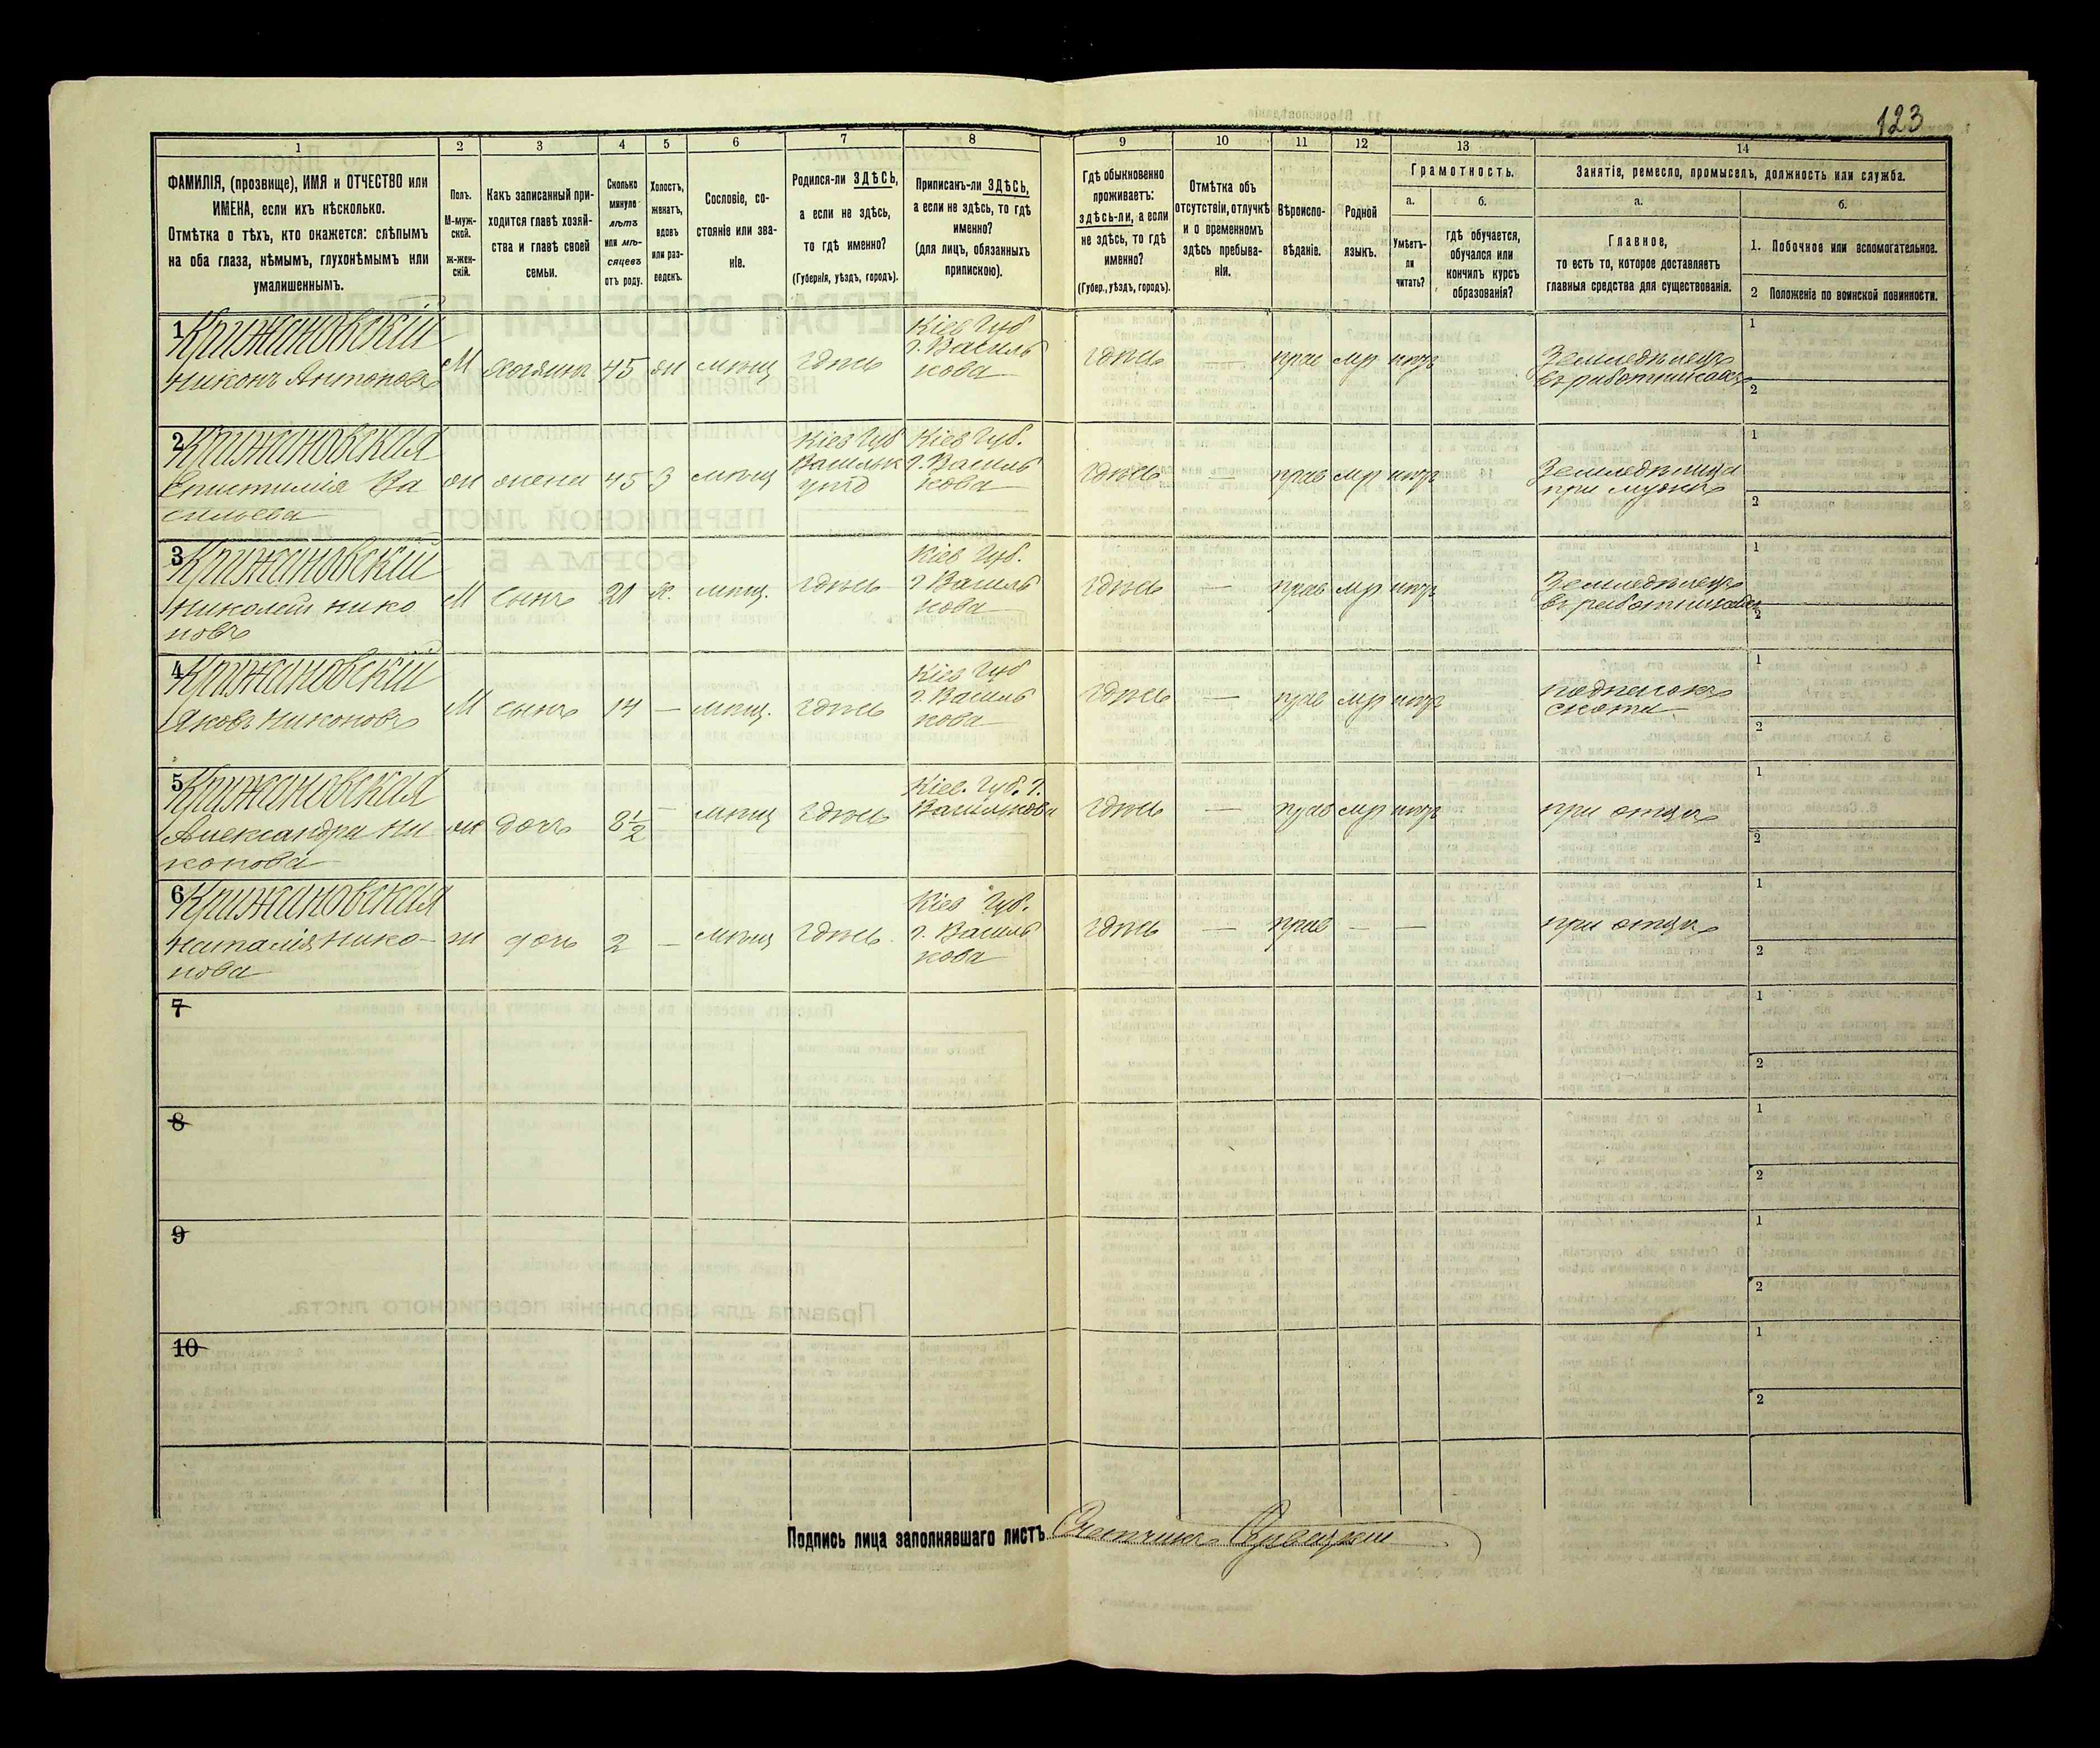 123
1
2
3
4
5
6
7
8
9
10
11
12
13
14
ФАМИЛІЯ, (прозвище), ИМЯ и ОТЧЕСТВО или
ИМЕНА, если ихъ нѣсколько.
Отмѣтка о тѣхъ, кто окажется: слѣпымъ
на оба глаза, нѣмымъ, глухонѣмымъ или
умалишеннымъ.
Полъ.
М-муж-
ской.
ж-жен-
скій.
Какъ записанный при-
ходится главѣ хозяй-
ства и главѣ своей
семьи.
Сколько
минуло
лѣтъ
или мѣ-
сяцевъ
отъ роду.
Холостъ,
женатъ,
вдовъ
или раз-
веденъ.
Сословіе, со-
стояніе или зва-
ніе.
Родился-ли ЗДѢСЬ,
а если не здѣсь,
то гдѣ именно?
(Губернія, уѣздъ, городъ).
Приписанъ-ли ЗДѢСЬ,
а если не здѣсь, то гдѣ
именно?
(для лицъ, обязанныхъ
припискою).
Гдѣ обыкновенно
проживаетъ:
здѣсь-ли, а если
не здѣсь, то гдѣ
именно?
(Губер., уѣздъ, городъ).
Отмѣтка объ
отсутствіи, отлучкѣ
и о временномъ
здѣсь пребыва-
ніи.
Вѣроиспо-
вѣданіе.
Родной
языкъ.
Грамотность.
а.
Умѣетъ-
ли
читать?
б.
гдѣ обучается,
обучался или
кончилъ курсъ
образованія?
Занятіе, ремесло, промыселъ, должность или служба.
а.
Главное,
то есть то, которое доставляетъ
главныя средства для существованія.
б.
1. Побочное или вспомогательное.
2 Положеніе по воинской повинности.
1 Крижановскій
Никонъ Антоновъ
М хозяинъ 45 мѣщ здѣсь
Кіев Губ
г. Василь
кова
здѣсь — прав мр нѣтъ
Земледѣлецъ
въ работникахъ
1
2
2 Крижановская
Епистимія Ва
сильева
ж жена 45 з мѣщ
Кіев Губ
Васильк
Кіев Губ.
г. Василь
кова
здѣсь — прав мр нѣтъ
Земледѣлица
при мужѣ
1
2
3 Крижановскій
Николай Нико
новъ
М сынъ 21 х. мѣщ. здѣсь
Кіев Губ.
г Василь
кова
здѣсь — прав мр нѣтъ
Земледѣлецъ
въ работникахъ
1
2
4 Крижановскій
Яковъ Никоновъ
М сынъ 14 — мѣщ. здѣсь
Кіев Губ
г. Василь
кова
здѣсь — прав мр нѣтъ
подпасокъ
скота
1
2
5 Крижановская
Александра Ни
конова
ж дочь 8½ — мѣщ здѣсь
Кіев. Губ. г.
Василькова
здѣсь — прав мр нѣтъ
при отцѣ
1
2
6 Крижановская
Наталія Нико-
нова
ж дочь 2 — мѣщ здѣсь
Кіев Губ.
г. Василь
кова
здѣсь — прав — —
при отцѣ
1
2
7
1
2
8
1
2
9
1
2
10
1
2
Подпись лица заполнявшаго листъ Счетчикъ